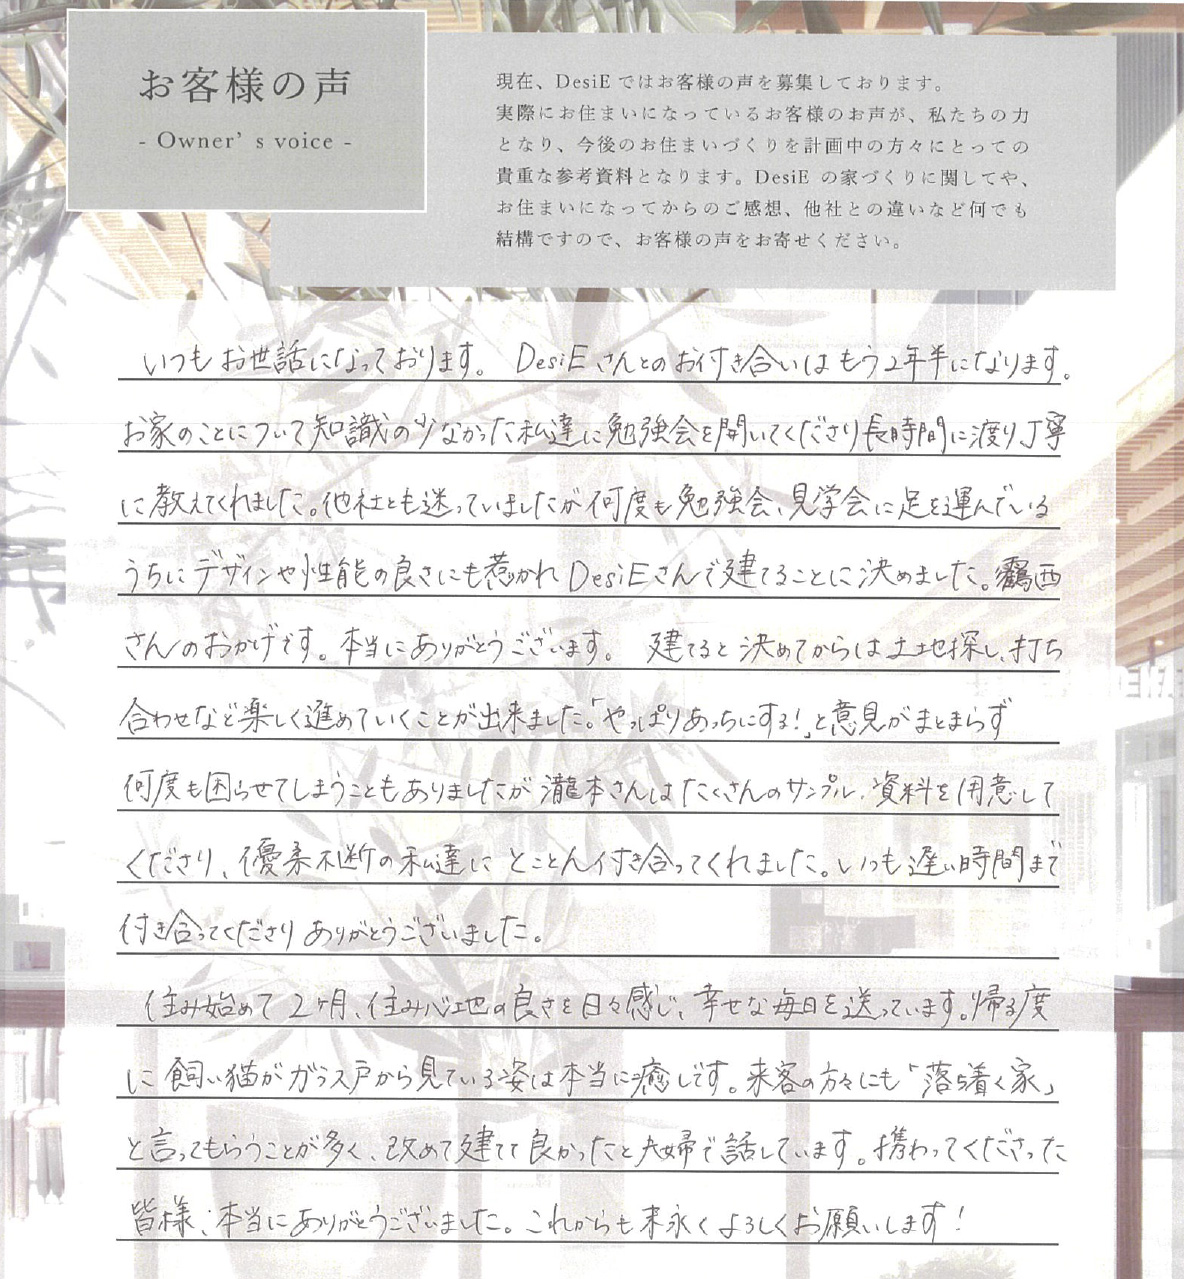 お客様の声
- Owner’s voice -
現在、DesiE ではお客様の声を募集しております。
実際にお住まいになっているお客様のお声が、私たちの力
となり、今後のお住まいづくりを計画中の方々にとっての
貴重な参考資料となります。DesiE の家づくりに関してや、
お住まいになってからのご感想、他社との違いなど何でも
結構ですので、お客様の声をお寄せください。
いつもお世話になっております。 DesiEさんとのお付き合いはもう2年半になります。
お家のことについて知識の少なかった私達に勉強会を開いてくださり長時間に渡り丁寧
に教えてくれました。他社とも迷っていましたが何度も勉強会、見学会に足を運んでいる
うちにデザインや性能の良さにも惹かれDesiEさんで建てることに決めました。鸖西
さんのおかげです。本当にありがとうございます。 建てると決めてからは土地探し、打ち
合わせなど楽しく進めていくことが出来ました。「やっぱりあっちにする!」と意見がまとまらず
何度も困らせてしまうこともありましたが瀧本さんはたくさんのサンプル、資料を用意して
くださり、優柔不断の私達にとことん付き合ってくれました。いつも遅い時間まで
付き合ってくださりありがとうございました。
住み始めて2ヶ月、住み心地の良さを日々感じ、幸せな毎日を送っています。帰る度
に飼い猫がガラス戸から見ている姿は本当に癒しです。来客の方々にも「落ち着く家」
と言ってもらうことが多く、改めて建てて良かったと夫婦で話しています。携わってくださった
皆様、本当にありがとうございました。これからも末永くよろしくお願いします!